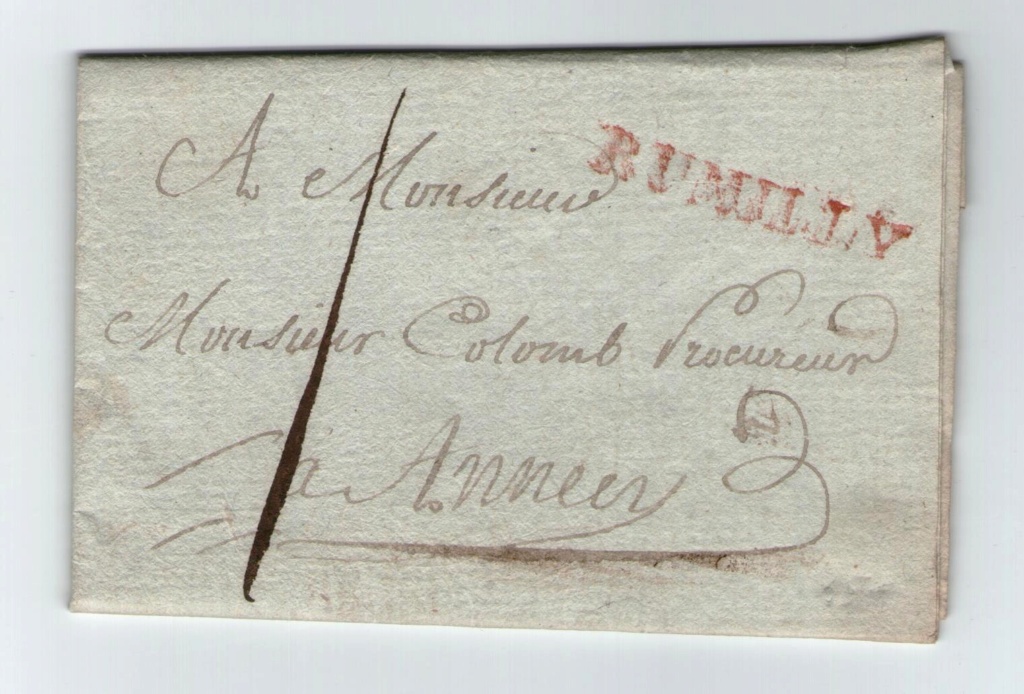 RUMILLY
A Monsieur
Monsieur Colomb Procureur
à Annecy